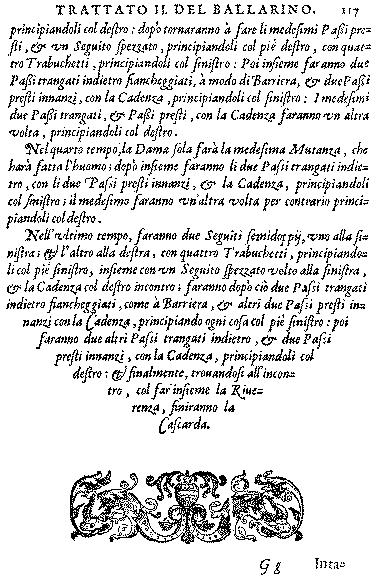 TRATTATO II. DEL BALLARINO. 117
principiandoli col destro: dopò tornaranno à fare li medesimi Passi pre-
sti, & vn Seguito spezzato, principiandoli col piè destro, con quat-
tro Trabuchetti, principiandoli col sinistro: Poi insieme faranno due
Passi trangati indietro fiancheggiati, à modo di Barriera, & due Passi
presti innanzi, con la Cadenza, principiandoli col sinistro: I medesimi
due Passi trangati, & Passi presti, con la Cadenza faranno vn altra
volta, principiandoli col destro.
Nel quarto tempo, la Dama sola farà la medesima Mutanza, che
harà fatta l'huomo; dopò insieme faranno li due Passi trangati indie-
tro, con li due Passi presti innanzi, & la Cadenza, principiandoli
col sinistro; il medesimo faranno vn'altra volta per contrario princi-
piandoli col destro.
Nell'vltimo tempo, faranno due Seguiti semidoppij, vno alla si-
nistra; & l'altro alla destra, con quattro Trabuchetti, principiando-
li col piè sinistro, insieme con vn Seguito spezzato volto alla sinistra,
& la Cadenza col destro incontro: faranno dopò ciò due Passi trangati
indietro fiancheggiati, come à Barriera, & altri due Passi presti in-
nanzi con la Cadenza, principiando ogni cosa col piè sinistro: poi
faranno due altri Passi trangati indietro, & due Passi
presti innanzi, con la Cadenza, principiandoli col
destro: & finalmente, trouandosi all'incon-
tro, col far'insieme la Riue-
renza, finiranno la
Cascarda.
G g Inta-